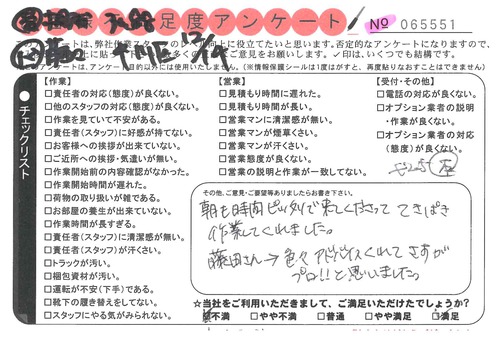 足度アンケート
No 065551
のアンケートは、弊社作業スタッフのレベル向上に役立てたいと思います。否定的なアンケートになりますので、
上に貼って 多くの厳しいご意見をお願いします。✓印は、いくつでも結構です。
このアンケートは、アンケート目的以外には使用いたしません。(※情報保護シールは1度はがすと、再度貼りなおすことはできません)
チェックリスト
【作業】
□責任者の対応(態度)が良くない。
□他のスタッフの対応(態度)が良くない。
□作業を見ていて不安がある。
□責任者(スタッフ)に好感が持てない。
□お客様への挨拶が出来ていない。
□ご近所への挨拶・気遣いが無い。
□作業開始前の内容確認がなかった。
□作業開始時間が遅れた。
□荷物の取り扱いが雑である。
□お部屋の養生が出来ていない。
□作業時間が長すぎる。
□責任者(スタッフ)に清潔感が無い。
□責任者(スタッフ)が汗くさい。
□トラックが汚い。
□梱包資材が汚い。
□運転が不安(下手)である。
□靴下の履き替えをしてない。
□スタッフにやる気がみられない。
【営業】
□見積もり時間に遅れた。
□見積もり時間が長い。
□営業マンに清潔感が無い。
□営業マンが煙草くさい。
□営業マンが汗くさい。
□営業態度が良くない。
□営業の説明と作業が一致してない。
【受付・その他】
□電話の対応が良くない。
□オプション業者の説明
・作業が良くない。
□オプション業者の対応
(態度)が良くない。
その他、ご意見・ご要望等ありましたらお書き下さい。
朝も時間ピッタリで来てくださって てきぱき
作業してくれました。
藤田さん→色々アドバイスくれて さすが
プロ!!と思いました。
☆当社をご利用いただきまして、ご満足いただけたでしょうか?
不満 □やや不満 □普通 □やや満足 □満足